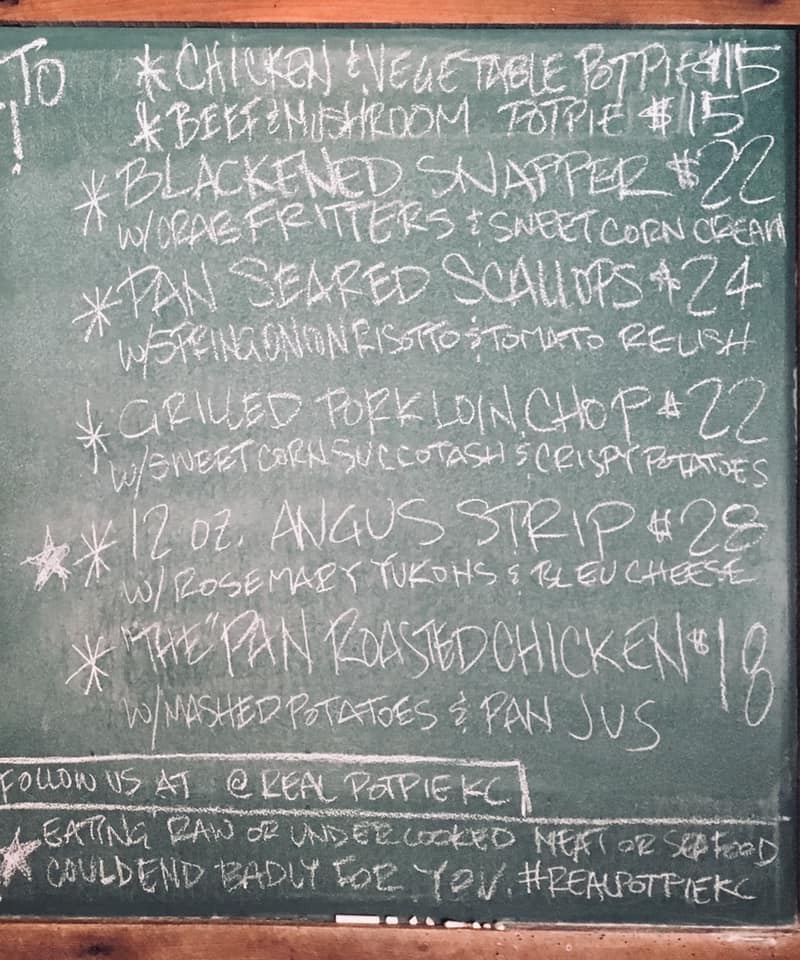 TO
!
* CHICKEN & VEGETABLE POTPIE $15
* BEEF & MUSHROOM POTPIE $15
* BLACKENED SNAPPER $22
W/CRAB FRITTERS & SWEET CORN CREAM
* PAN SEARED SCALLOPS $24
W/SPRING ONION RISOTTO & TOMATO RELISH
* GRILLED PORK LOIN CHOP $22
W/SWEET CORN SUCCOTASH & CRISPY POTATOES
★ * 12 OZ. ANGUS STRIP $28
W/ROSEMARY YUKONS & BLEU CHEESE
* "THE" PAN ROASTED CHICKEN $18
W/MASHED POTATOES & PAN JUS
FOLLOW US AT @REAL POTPIEKC
★ EATING RAW OR UNDERCOOKED MEAT OR SEAFOOD
COULD END BADLY FOR YOU. #REALPOTPIEKC